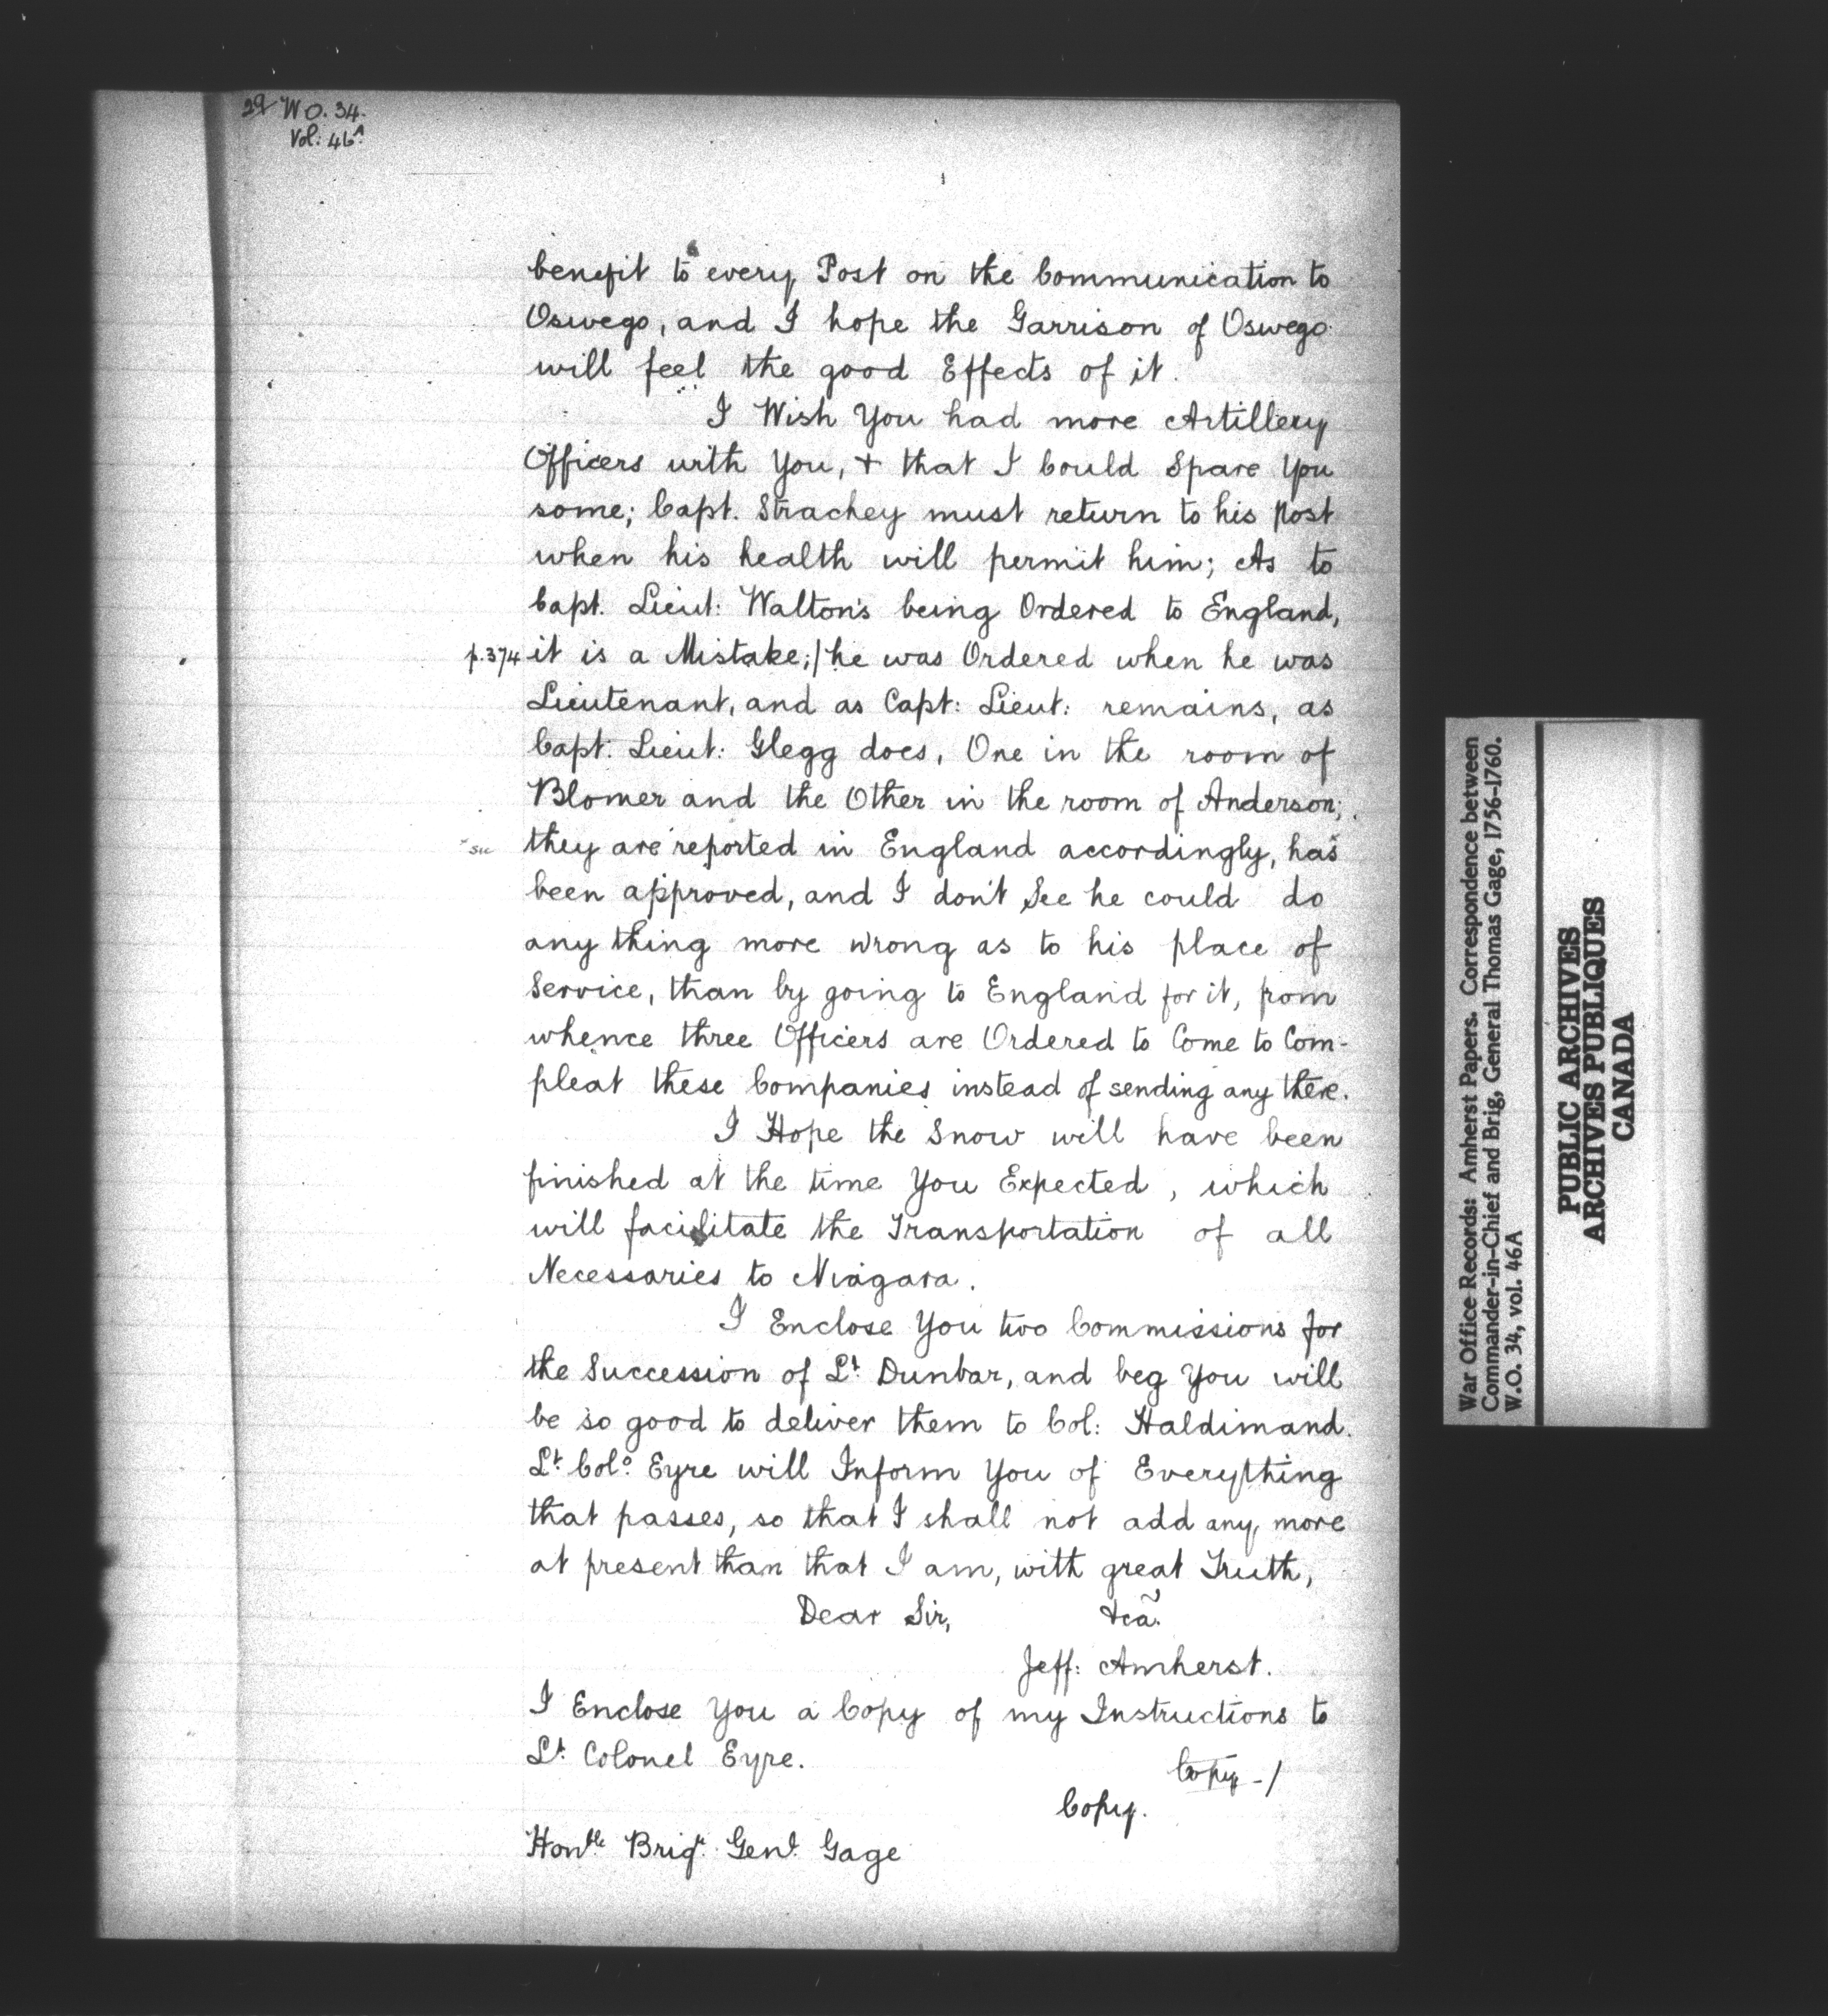 29 W O. 34.
Vol: 46A
benefit to every Post on the Communication to
Oswego, and I hope the Garrison of Oswego
will feel the good Effects of it.
I Wish You had more Artillery
Officers with You, + that I Could Spare You
some; Capt. Strachey must return to his Post
when his health will permit him; As to
Capt. Lieut: Walton's being Ordered to England,
p.374 it is a Mistake;/he was Ordered when he was
Lieutenant, and as Capt: Lieut: remains, as
Capt: Lieut: Glegg does, One in the room of
Blomer and the Other in the room of Anderson;
x sic they are reported in England accordingly, hasx
been approved, and I don't See he could do
any thing more wrong as to his place of
Service, than by going to England for it, from
whence three Officers are Ordered to Come to Com-
pleat these Companies instead of sending any there.
I Hope the Snow will have been
finished at the time You Expected, which
will facilitate the Transportation of all
Necessaries to Niagara.
I Enclose You two Commissions for
the Succession of Lt. Dunbar, and beg You will
be so good to deliver them to Col: Haldimand.
Lt. Colo. Eyre will Inform You of Everything
that passes, so that I shall not add any more
at present than that I am, with great Truth,
Dear Sir, &ca.
Jeff: Amherst.
I Enclose You a Copy of my Instructions to
Lt. Colonel Eyre.
Copy -/
Copy.
Honble Brigr. Genl. Gage
War Office Records: Amherst Papers. Correspondence between
Commander-in-Chief and Brig, General Thomas Gage, 1756-1760.
W.O. 34, vol. 46A
PUBLIC ARCHIVES
ARCHIVES PUBLIQUES
CANADA